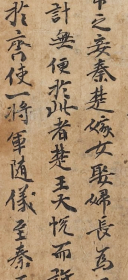 之妾秦楚嫁女娶婦長為
計無便於此者楚王大悅而
於齊使一將軍隨儀至秦